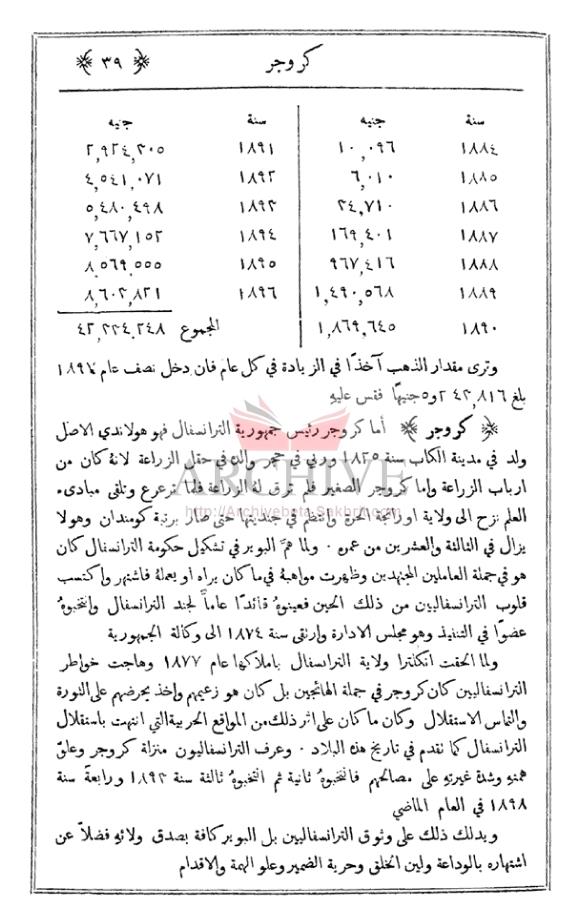 كروجر ﴿ ٣٩ ﴾
سنة جنيه سنة جنيه
١٨٨٤ ١٠,٠٩٦ ١٨٩١ ٢,٩٢٤,٣٠٥
١٨٨٥ ٦,٠١٠ ١٨٩٢ ٤,٥٤١,٠٧١
١٨٨٦ ٣٤,٧١٠ ١٨٩٣ ٥,٤٨٠,٤٩٨
١٨٨٧ ١٦٩,٤٠١ ١٨٩٤ ٧,٦٦٧,١٥٢
١٨٨٨ ٩٦٧,٤١٦ ١٨٩٥ ٨,٥٦٩,٥٥٥
١٨٨٩ ١,٤٩٠,٥٦٨ ١٨٩٦ ٨,٦٠٣,٨٢١
١٨٩٠ ١,٨٦٩,٦٤٥ المجموع ٤٢,٢٣٤,٢٤٨
وترى مقدار الذهب آخذًا في الزيادة في كل عام فان دخل نصف عام ١٨٩٧
بلغ ٢٤٢,٨١٦ و٥ جنيهًا فقس عليهِ
﴿ كروجر ﴾ أما كروجر رئيس جمهورية الترانسفال فهو هولاندي الاصل
ولد في مدينة الكاب سنة ١٨٢٥ وربي في حجر والده في حقل الزراعة لانهُ كان من
ارباب الزراعة وإما كروجر الصغير فلم ترق لهُ الزراعة فلما ترعرع وتلقى مبادىء
العلم نزح الى ولاية اورانجة الحرة وانتظم في جنديتها حتى صار برتبة كومندان وهولا
يزال في الثالثة والعشرين من عمره ٠ ولما همَّ البوير في تشكيل حكومة الترانسفال كان
هو في جملة العاملين المجتهدين وظهرت مواهبهُ في ما كان يراه او يعملهُ فاشتهر واكتسب
قلوب الترانسفاليين من ذلك الحين فعينوهُ قائدًا عاماً لجند الترانسفال وانتخبوهُ
عضوًا في التنفيذ وهو مجلس الادارة وارتقى سنة ١٨٧٤ الى وكالة الجمهورية
ولما الحقت انكلترا ولاية الترانسفال باملاكها عام ١٨٧٧ وهاجت خواطر
الترانسفاليين كان كروجر في جملة الهائجين بل كان هو زعيمهم واخذ يحرضهم على الثورة
والتماس الاستقلال وكان ما كان على اثر ذلك من المواقع الحربية التي انتهت باستقلال
الترانسفال كما تقدم في تاريخ هذه البلاد ٠ وعرف الترانسفاليون منزلة كروجر وعلوّ
همتهِ وشدة غيرتهِ على مصالحهم فانتخبوهُ ثانية ثم انتخبوهُ ثالثة سنة ١٨٩٣ ورابعة سنة
١٨٩٨ في العام الماضي
ويدلك ذلك على وثوق الترانسفاليين بل البوير كافة بصدق ولائهِ فضلاً عن
اشتهاره بالوداعة ولين الخلق وحرية الضمير وعلو الهمة والاقدام
ARCHIVE
http://Archivebeta.Sakhrit.com